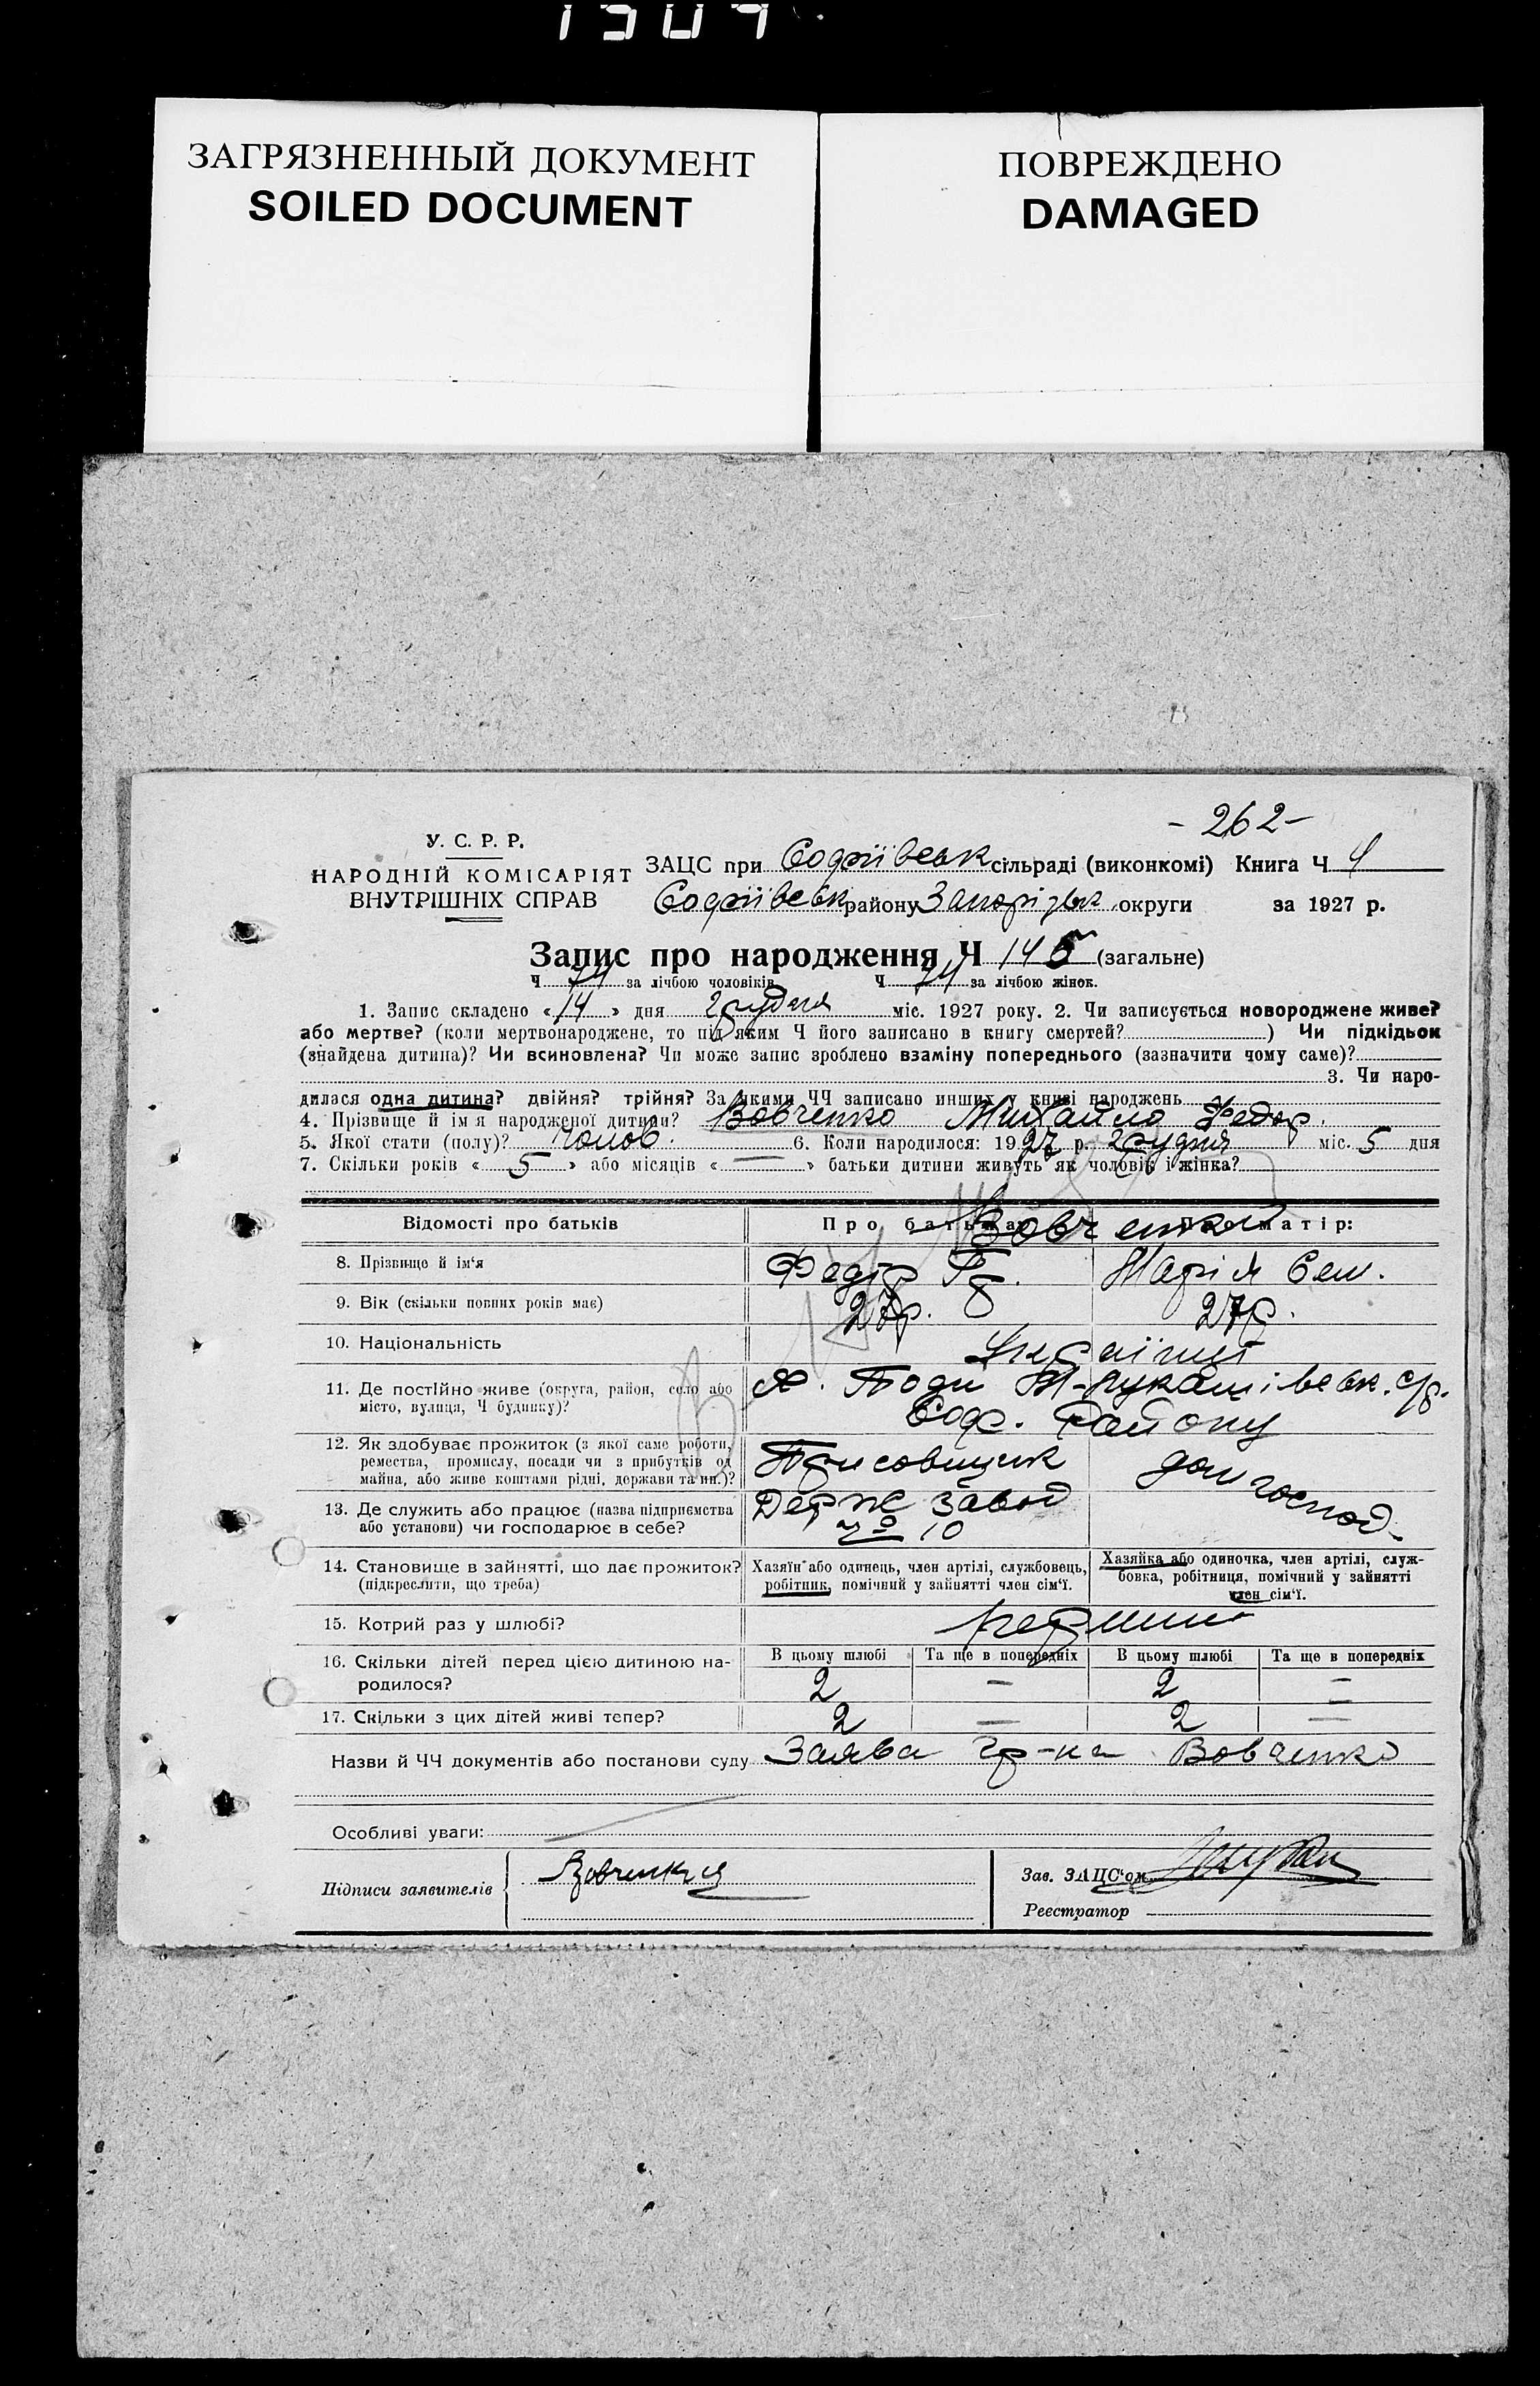 ЗАГРЯЗНЕННЫЙ ДОКУМЕНТ
SOILED DOCUMENT
ПОВРЕЖДЕНО
DAMAGED
- 262 -
У. С. Р. Р.
НАРОДНІЙ КОМІСАРІЯТ
ВНУТРІШНІХ СПРАВ
ЗАЦС при Софіївськ сільраді (виконкомі) Книга Ч 4
Софіївськ району Запорізьк округи за 1927 р.
Запис про народження Ч 145 (загальне)
Ч 74 за лічбою чоловіків Ч за лічбою жінок.
1. Запис складено «14» дня грудня міс. 1927 року. 2. Чи записується новороджене живе?
або мертве? (коли мертвонароджене, то під яким Ч його записано в книгу смертей? ) Чи підкідьок
(знайдена дитина)? Чи всиновлена? Чи може запис зроблено взаміну попереднього (зазначити чому саме)?
3. Чи наро-
дилася одна дитина? двійня? трійня? За якими ЧЧ записано инших у книзі народжень
4. Прізвище й ім'я народженої дитини? Вовченко Михайло Федор.
5. Якої стати (полу)? чолов. 6. Коли народилося: 1927 р. грудня міс. 5 дня
7. Скільки років «5» або місяців «—» батьки дитини живуть як чоловік і жінка?
Відомості про батьків Про батька: Про матір:
Вовченки
8. Прізвище й ім'я Федір Марія Сем.
9. Вік (скільки повних років має) 27р. 27р.
10. Національність Українці
11. Де постійно живе (округа, район, село або
місто, вулиця, Ч будинку)?
Соф. Району
12. Як здобуває прожиток (з якої саме роботи,
ремества, промислу, посади чи з прибутків од
майна, або живе коштами рідні, держави та ин.)?
дом господ.
13. Де служить або працює (назва підприємства
або установи) чи господарює в себе?
Держ Завод
№ 10
14. Становище в зайнятті, що дає прожиток?
(підкреслити, що треба)
Хазяїн або одинець, член артілі, службовець,
робітник, помічний у зайнятті член сім'ї.
Хазяйка або одиночка, член артілі, служ-
бовка, робітниця, помічний у зайнятті
член сім'ї.
15. Котрий раз у шлюбі?
16. Скільки дітей перед цією дитиною на-
родилося?
В цьому шлюбі Та ще в попередніх В цьому шлюбі Та ще в попередніх
2 — 2 —
17. Скільки з цих дітей живі тепер? 2 — 2 —
Назви й ЧЧ документів або постанови суду Заява гр-на Вовченко
Особливі уваги:
Підписи заявителів
Зав. ЗАЦС'ом
Реєстратор